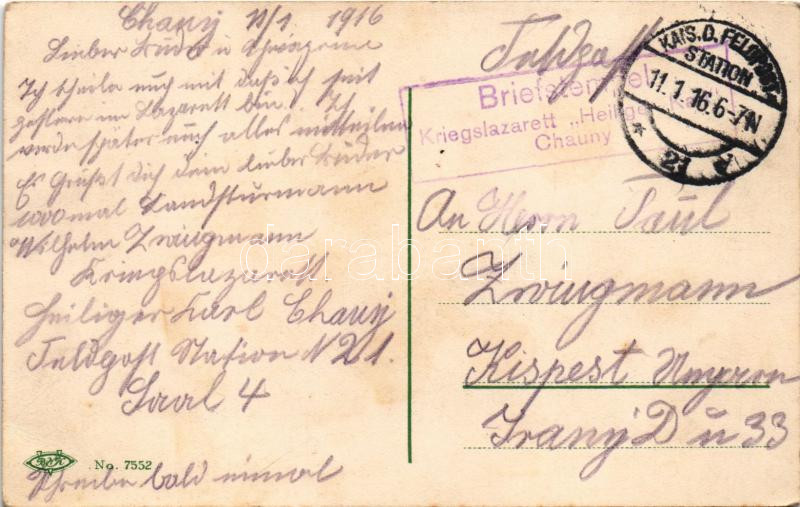 Chauny 11/1 1916
Lieber Bruder u Schwägerin
Ich theile euch mit daß ich seit
gestern im Lazarett bin. Ich
werde später euch alles mitteilen
Es Grüßt dich dein lieber Bruder
1000mal Landsturmann
Wilhelm Zwingmann
Kriegslazarett
Heiliger Karl Chauny
Feldpost Station N 21.
Saal 4
Schreibe bald einmal
No. 7552
Feldpost
Briefstempel
Kriegslazarett „Heiliger Karl"
Chauny
KAIS. D. FELDPOST-
STATION
11.1.16.6-7N
* 21
An Herrn Paul
Zwingmann
Kispest Ungarn
Irányi D u 33
darabanth